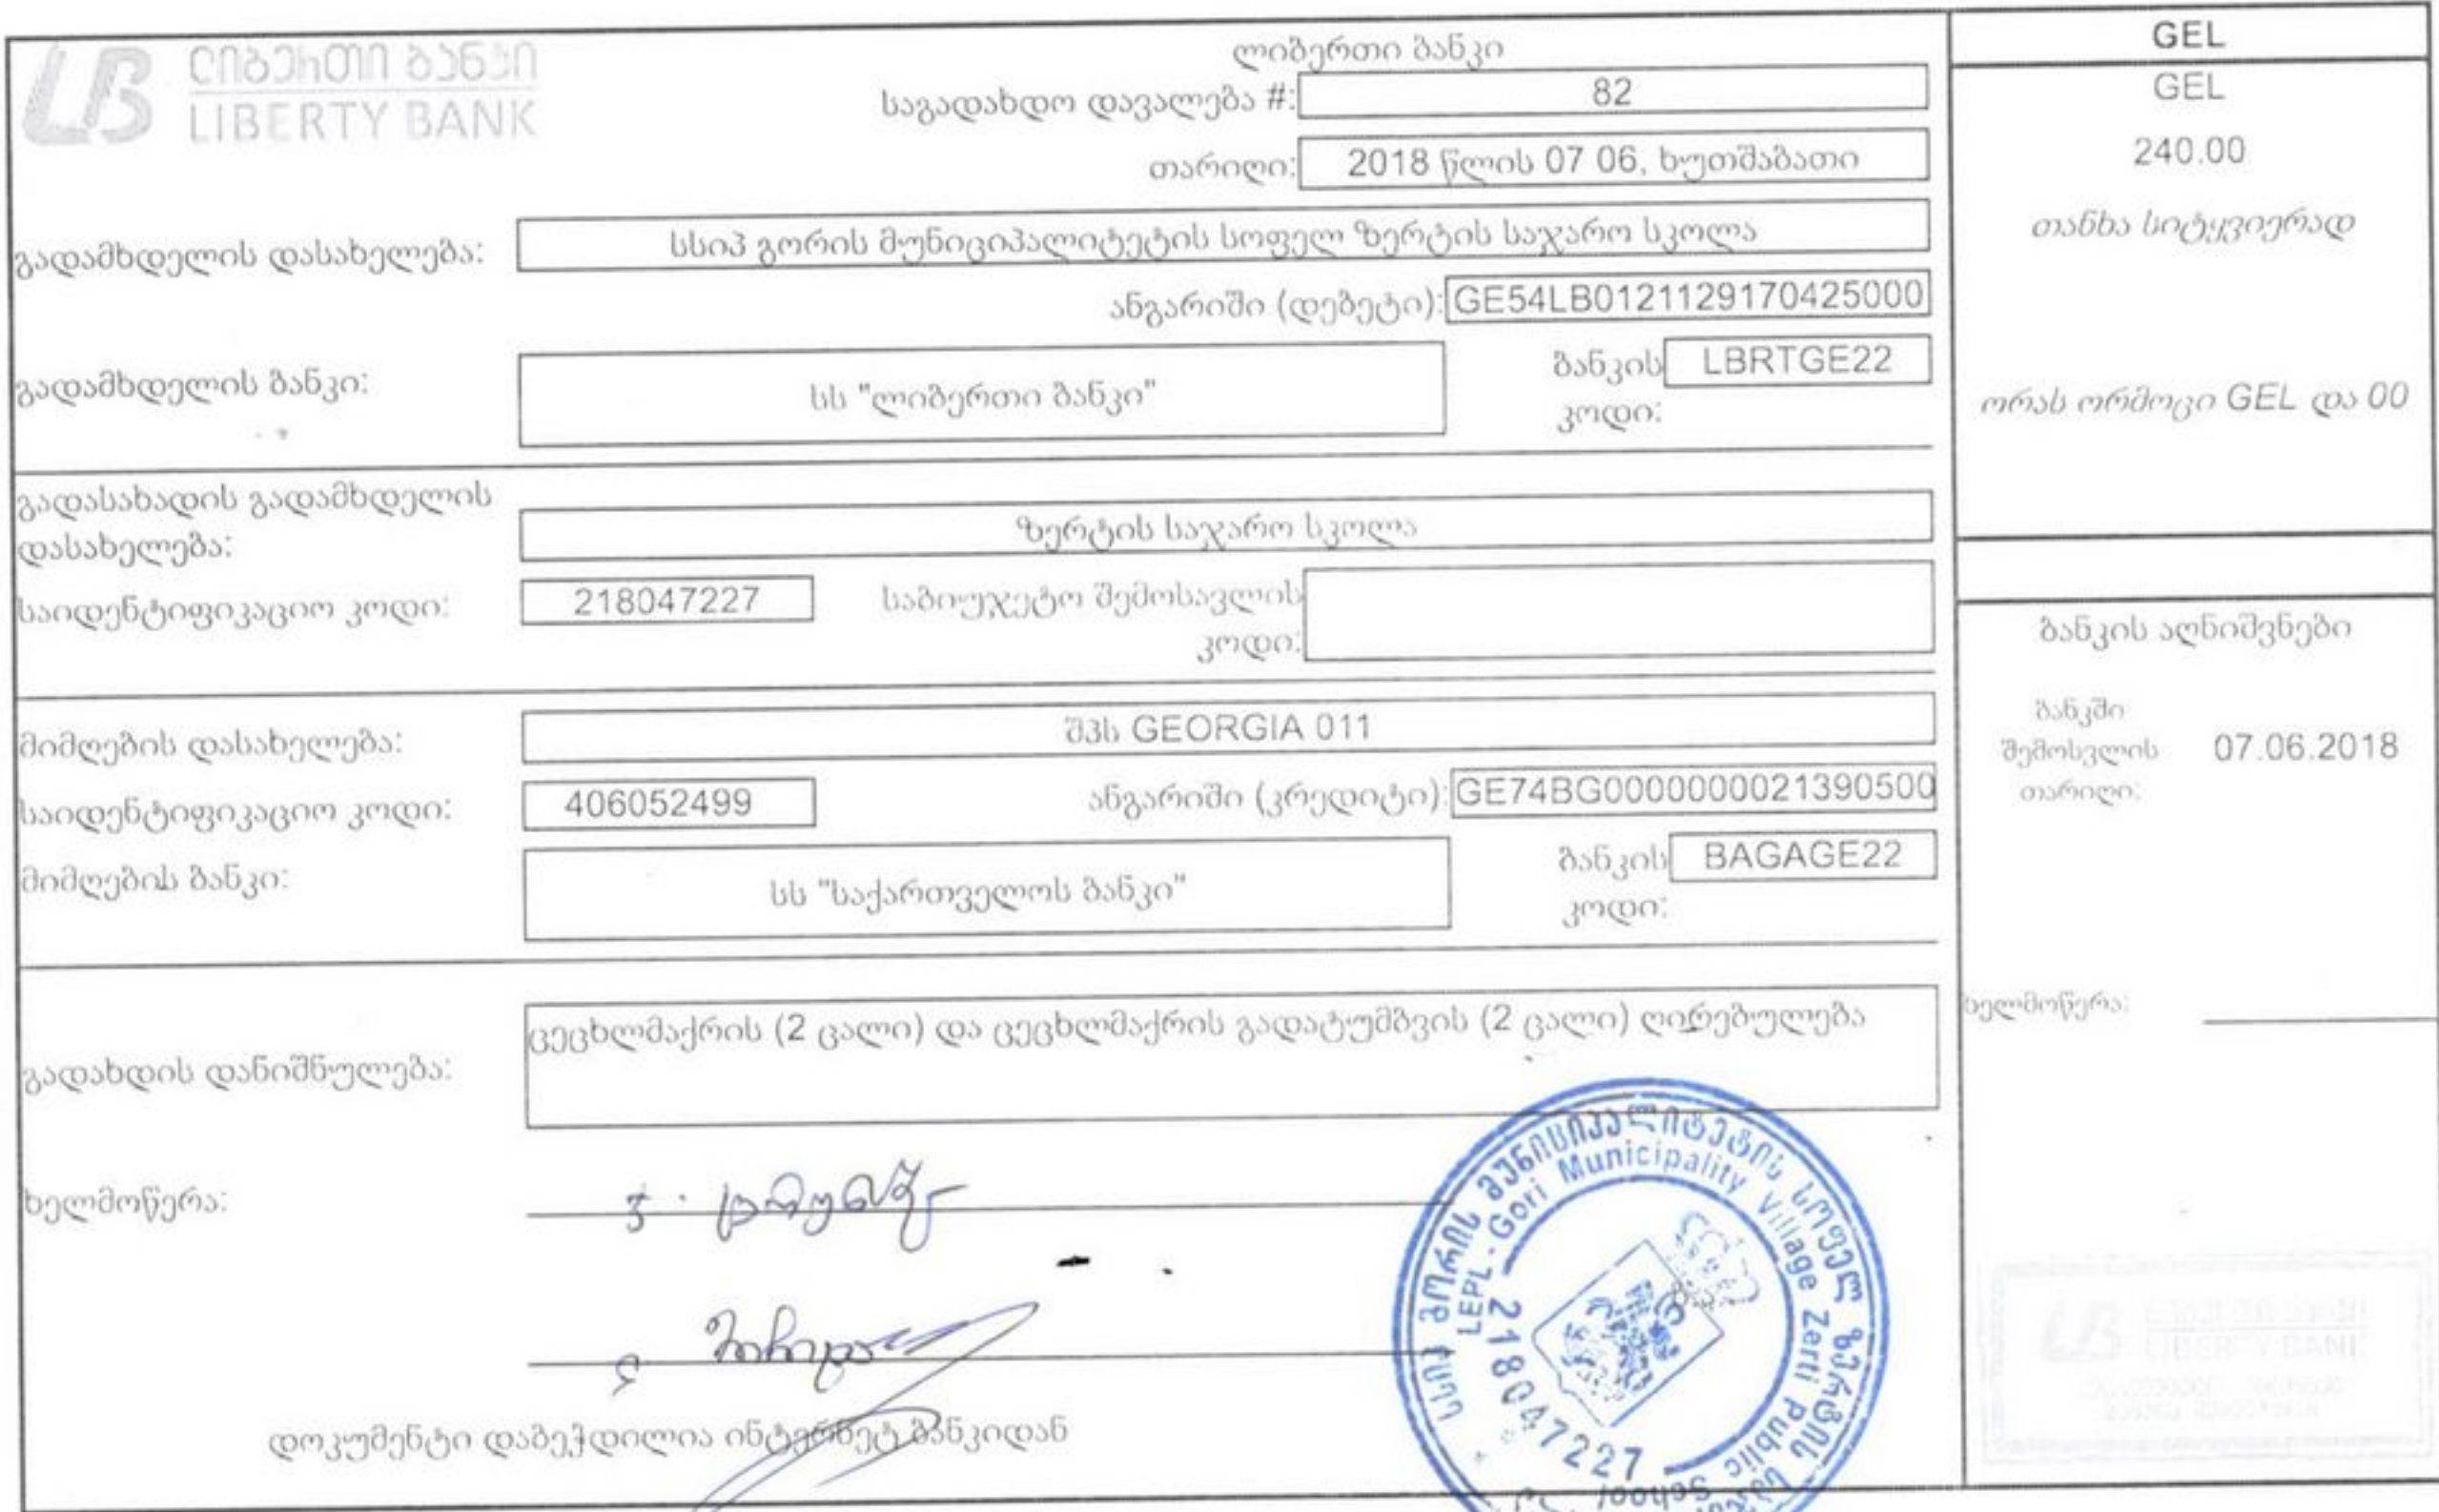 ლიბერთი ბანკი
LIBERTY BANK
ლიბერთი ბანკი
საგადახდო დავალება #: 82
თარიღი: 2018 წლის 07 06, ხუთშაბათი
გადამხდელის დასახელება: სსიპ გორის მუნიციპალიტეტის სოფელ ზერტის საჯარო სკოლა
ანგარიში (დებეტი): GE54LB0121129170425000
გადამხდელის ბანკი: სს "ლიბერთი ბანკი" ბანკის კოდი: LBRTGE22
გადასახადის გადამხდელის
დასახელება: ზერტის საჯარო სკოლა
საიდენტიფიკაციო კოდი: 218047227 საბიუჯეტო შემოსავლის
კოდი:
მიმღების დასახელება: შპს GEORGIA 011
საიდენტიფიკაციო კოდი: 406052499 ანგარიში (კრედიტი): GE74BG0000000021390500
მიმღების ბანკი: სს "საქართველოს ბანკი" ბანკის კოდი: BAGAGE22
გადახდის დანიშნულება: ცეცხლმაქრის (2 ცალი) და ცეცხლმაქრის გადატუმბვის (2 ცალი) ღირებულება
ხელმოწერა:
დოკუმენტი დაბეჭდილია ინტერნეტ ბანკიდან
GEL
GEL
240.00
თანხა სიტყვიერად
ორას ორმოცი GEL და 00
ბანკის აღნიშვნები
ბანკში
შემოსვლის 07.06.2018
თარიღი:
ხელმოწერა:
სსიპ გორის მუნიციპალიტეტის სოფელ ზერტის
LEPL - Gori Municipality Village Zerti Public School
218047227
LIBERTY BANK